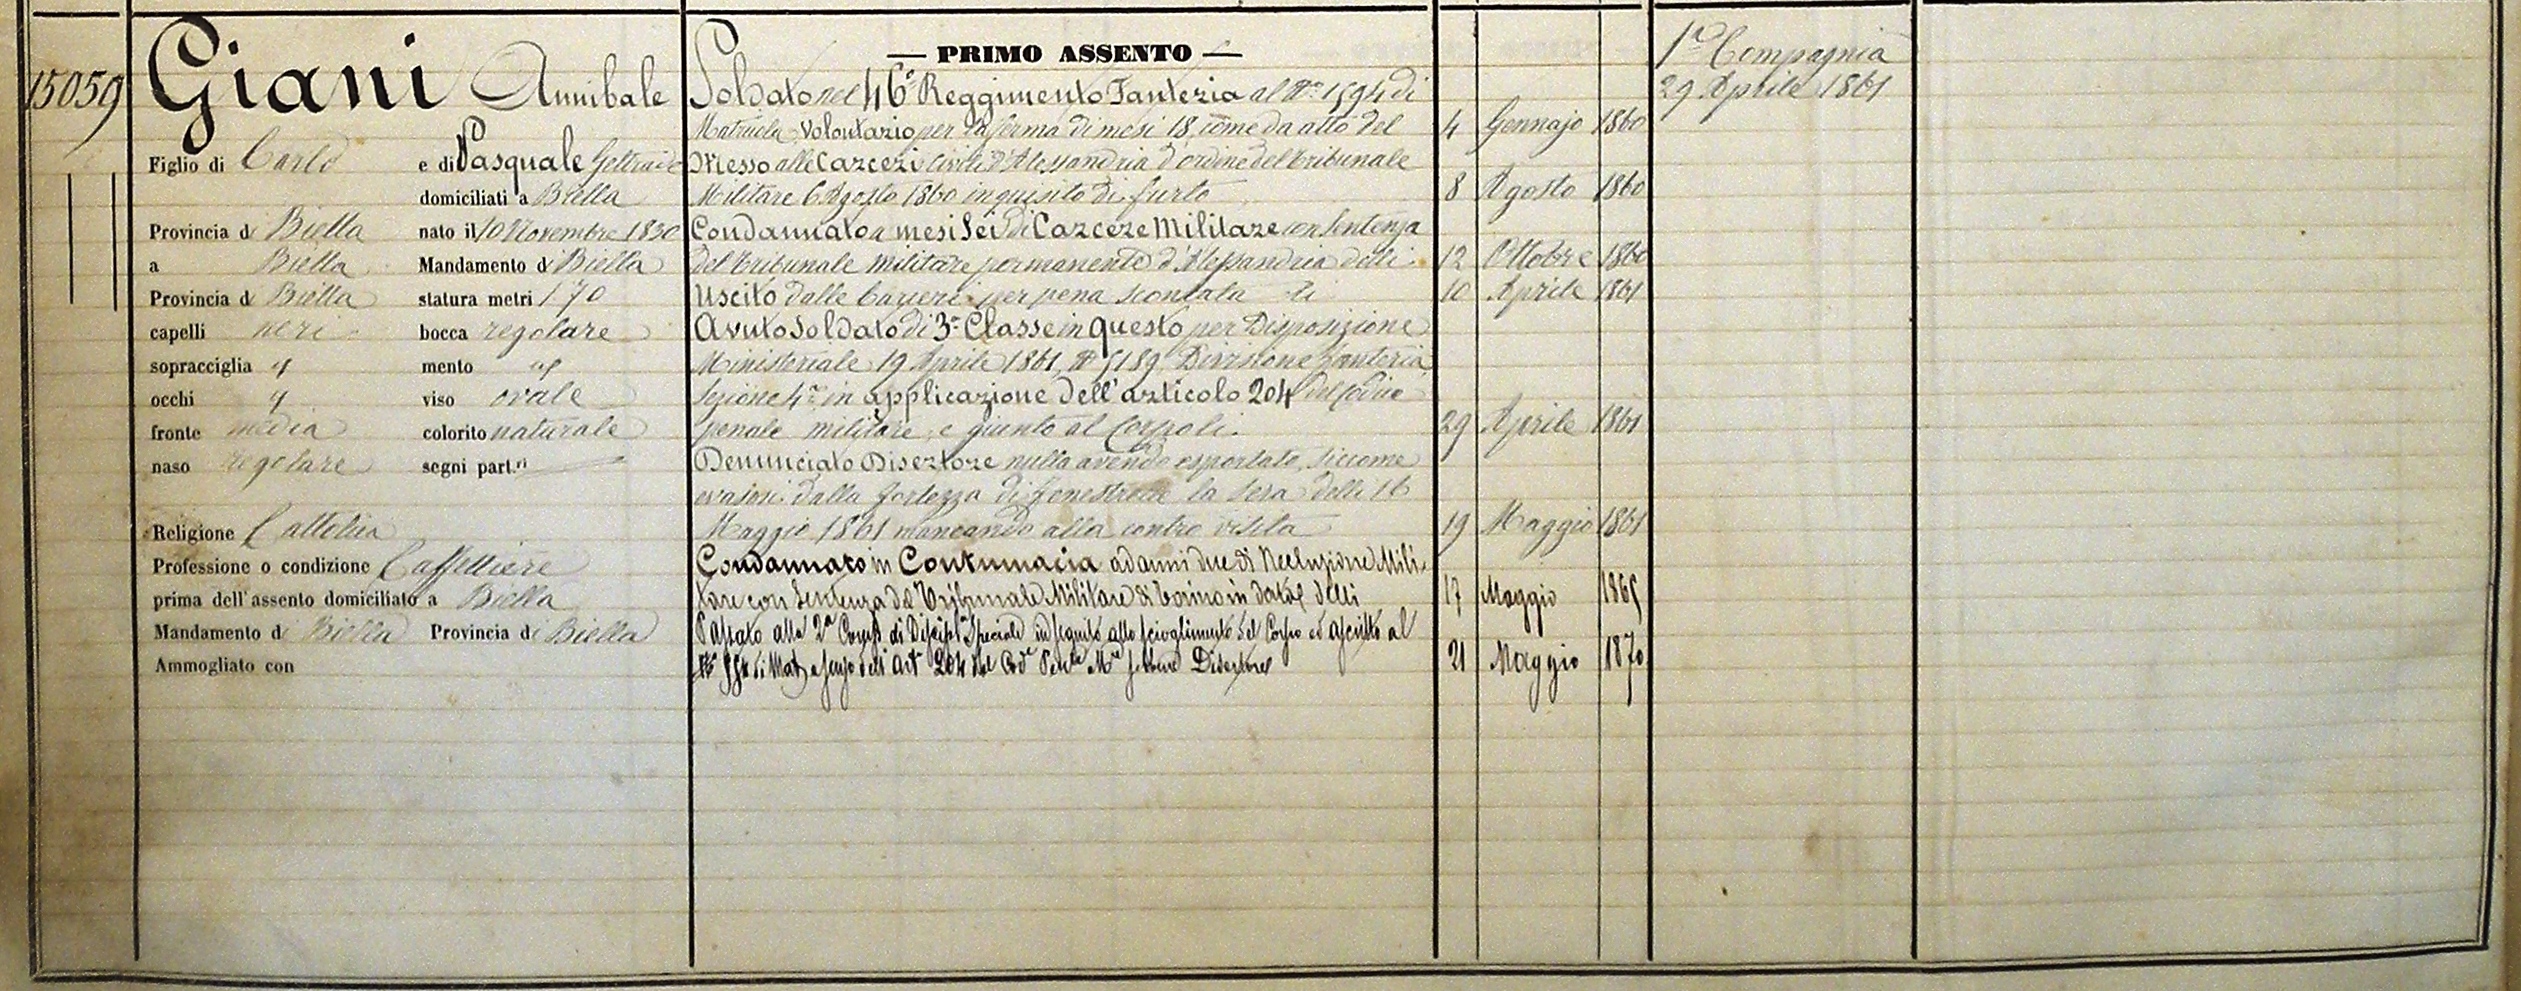 15059
Giani Annibale
Figlio di Carlo e di Pasquale Geltrude
domiciliati a Biella
Provincia di Biella nato il 10 Novembre 1830
a Biella Mandamento di Biella
Provincia di Biella statura metri 1 70
capelli neri bocca regolare
sopracciglia " mento "
occhi " viso ovale
fronte media colorito naturale
naso regolare segni part.ri
Religione Cattolica
Professione o condizione Caffettiere
prima dell'assento domiciliato a Biella
Mandamento di Biella Provincia di Biella
Ammogliato con
— PRIMO ASSENTO —
Soldato nel 46° Reggimento Fanteria al N° 1594 di
Matricola volontario per la ferma di mesi 18, come da atto del 4 Gennajo 1860
Messo alle Carceri Civili d'Alessandria d'ordine del tribunale
Militare 6 Agosto 1860 inquisito di furto 8 Agosto 1860
Condannato a mesi Sei di Carcere Militare con Sentenza
del tribunale militare permanente d'Alessandria delli 12 Ottobre 1860
Uscito dalle Carceri per pena scontata li 10 Aprile 1861
Avuto Soldato di 3ª Classe in questo per Disposizione
Ministeriale 19 Aprile 1861, N° 5189 Divisione fanteria
Sezione 4ª in applicazione dell'articolo 204 del Codice
penale militare, e giunto al Corpo li 29 Aprile 1861
Denunciato Disertore nulla avendo esportato, siccome
evasosi dalla fortezza di fenestrelle la sera delli 16
Maggio 1861 mancando alla contro visita 19 Maggio 1861
Condannato in Contumacia ad anni due di Reclusione Mili-
tare con Sentenza del Tribunale Militare di Torino in data delli 17 Maggio 1865
Passato alla 2ª Comp. di Discipl. Speciale in seguito allo scioglimento del Corpo ed ascritto al
di Mat. a senso dell'Art° 204 del Cod° Penle Mre sebbene Disertore 21 Maggio 1870
1ª Compagnia
29 Aprile 1861